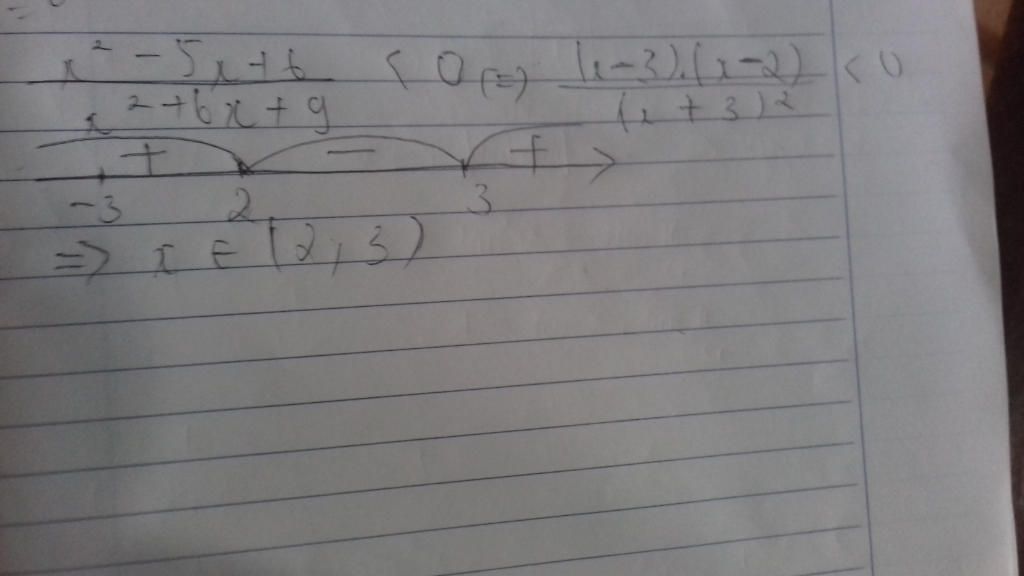 x² - 5x + 6 / x² + 6x + 9 < 0 (=) (x-3).(x-2) / (x + 3)² < 0
+ - +
-3 2 3
=> x ∈ (2, 3)